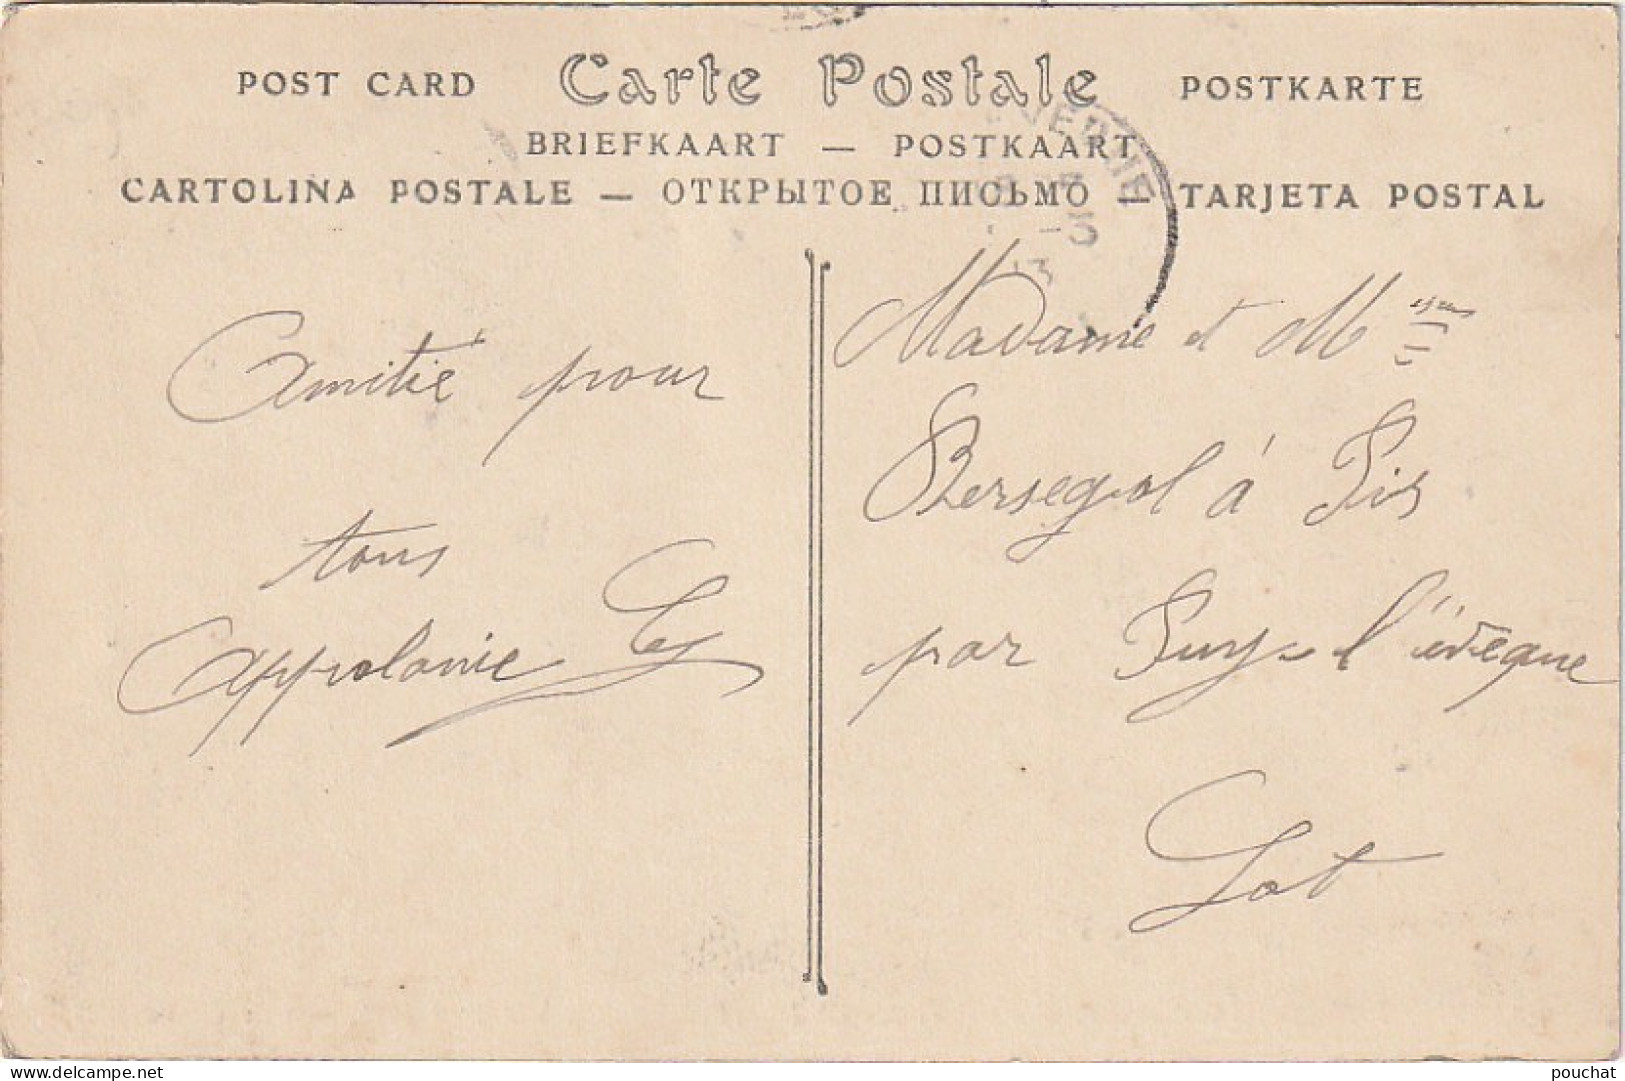 POST CARD Carte Postale POSTKARTE
BRIEFKAART — POSTKAART
CARTOLINA POSTALE — ОТКРЫТОЕ ПИСЬМО — TARJETA POSTAL
-5
Amitié pour
tous
Appolonie
Madame et M
Bersegol à Pis
par Puy-l'évêque
Lot
delcampe.net
pouchat